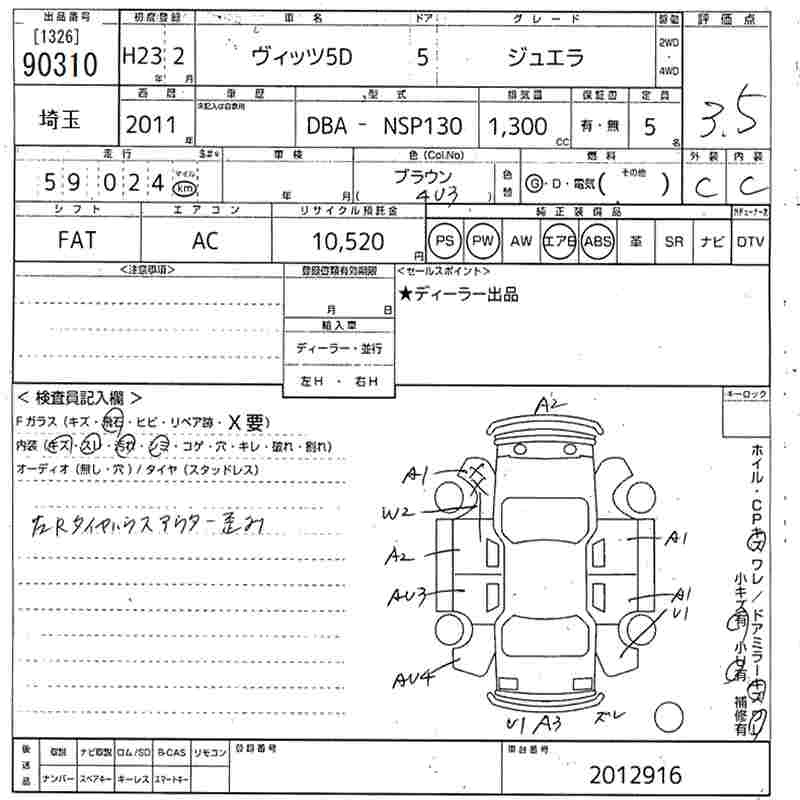 出品番号 初度登録 車名 ドア グレード 駆動 評価点
[1326]
90310 H23 2 ヴィッツ5D 5 ジュエラ 2WD・4WD 3.5
年 月
埼玉 西暦 車歴 型式 排気量 保証書 定員
未記入は自家用
2011年 DBA - NSP130 1,300cc 有・無 5名
走行 車検 色(Col.No) 燃料 外装 内装
59024 マイル km 年 月 ブラウン 4U3 色替 G・D・電気 ( その他 ) C C
シフト エアコン リサイクル預託金 純正装備品
FAT AC 10,520円 PS PW AW エアB ABS 革 SR ナビ DTV
<注意事項> 登録書類有効期限 <セールスポイント>
月 日 ★ディーラー出品
輸入車
ディーラー・並行
左H ・ 右H
<検査員記入欄> キーロック
Fガラス (キズ・飛石・ヒビ・リペア跡・X要)
内装 (キズ・スレ・汚れ・シミ・コゲ・穴・キレ・破れ・割れ)
オーディオ (無し・穴) / タイヤ (スタッドレス)
左Rタイヤハウスアウター歪み
A2
A1 XX
W2
A2 A1
AU3 A1
U1
AU4
U1 A3 ズレ
ホイル・CPキズワレ/ドアミラーキズワレ
小キズ有 小U有 補修有
後送品 取説 ナビ取説 ロム/SD B-CAS リモコン 登録番号 車台番号
ナンバー スペアキー キーレス スマートキー 2012916